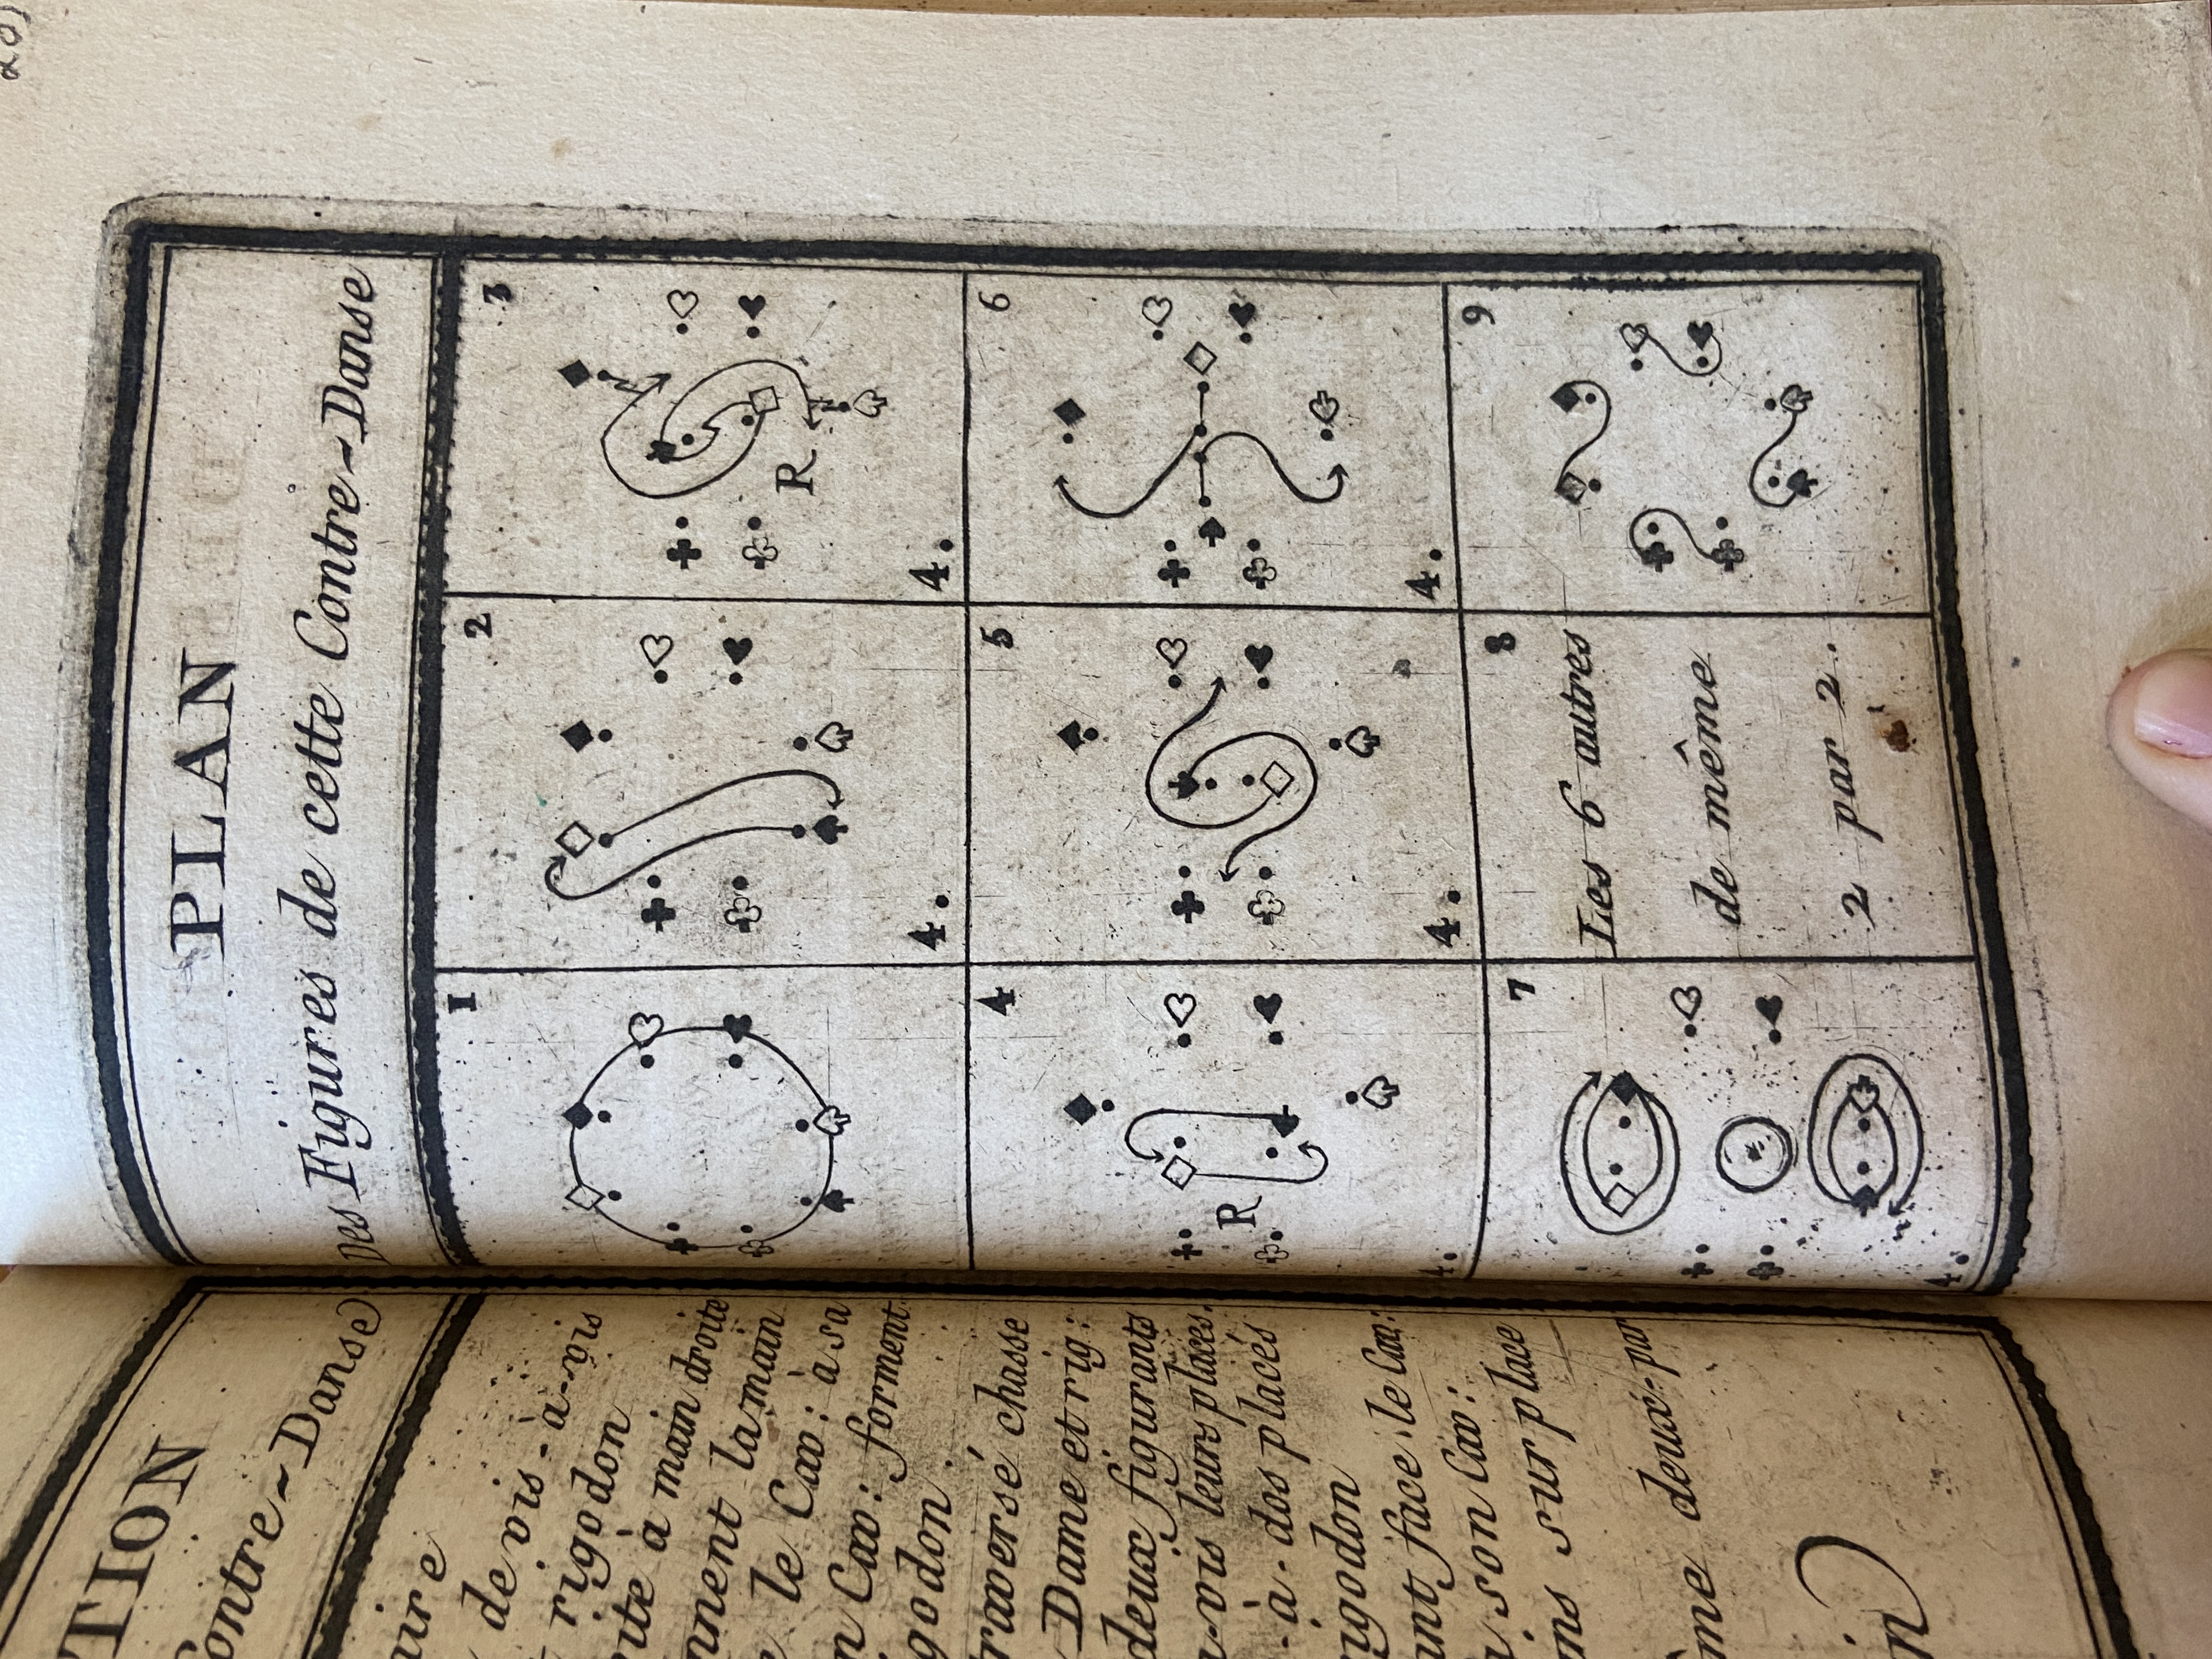 20)
PLAN
Des Figures de cette Contre-Danse
1
2
3
R
4.
4.
4
5
6
R
4.
4.
4.
7
8
9
Les 6 autres
de même
2 par 2.
4.
TION
Contre-Danse
aire
de vis-à-vis
rigodon
ite à main droite
nnent la main
le Cav: à sa
n Cav: forment
godon.
traversé chasse
Dame et rig:
deux figurants
a-vis leurs places.
-à-dos placés
rigodon
ant face le Cav:
a son Cav:
ns sur place
ême deux-par
in